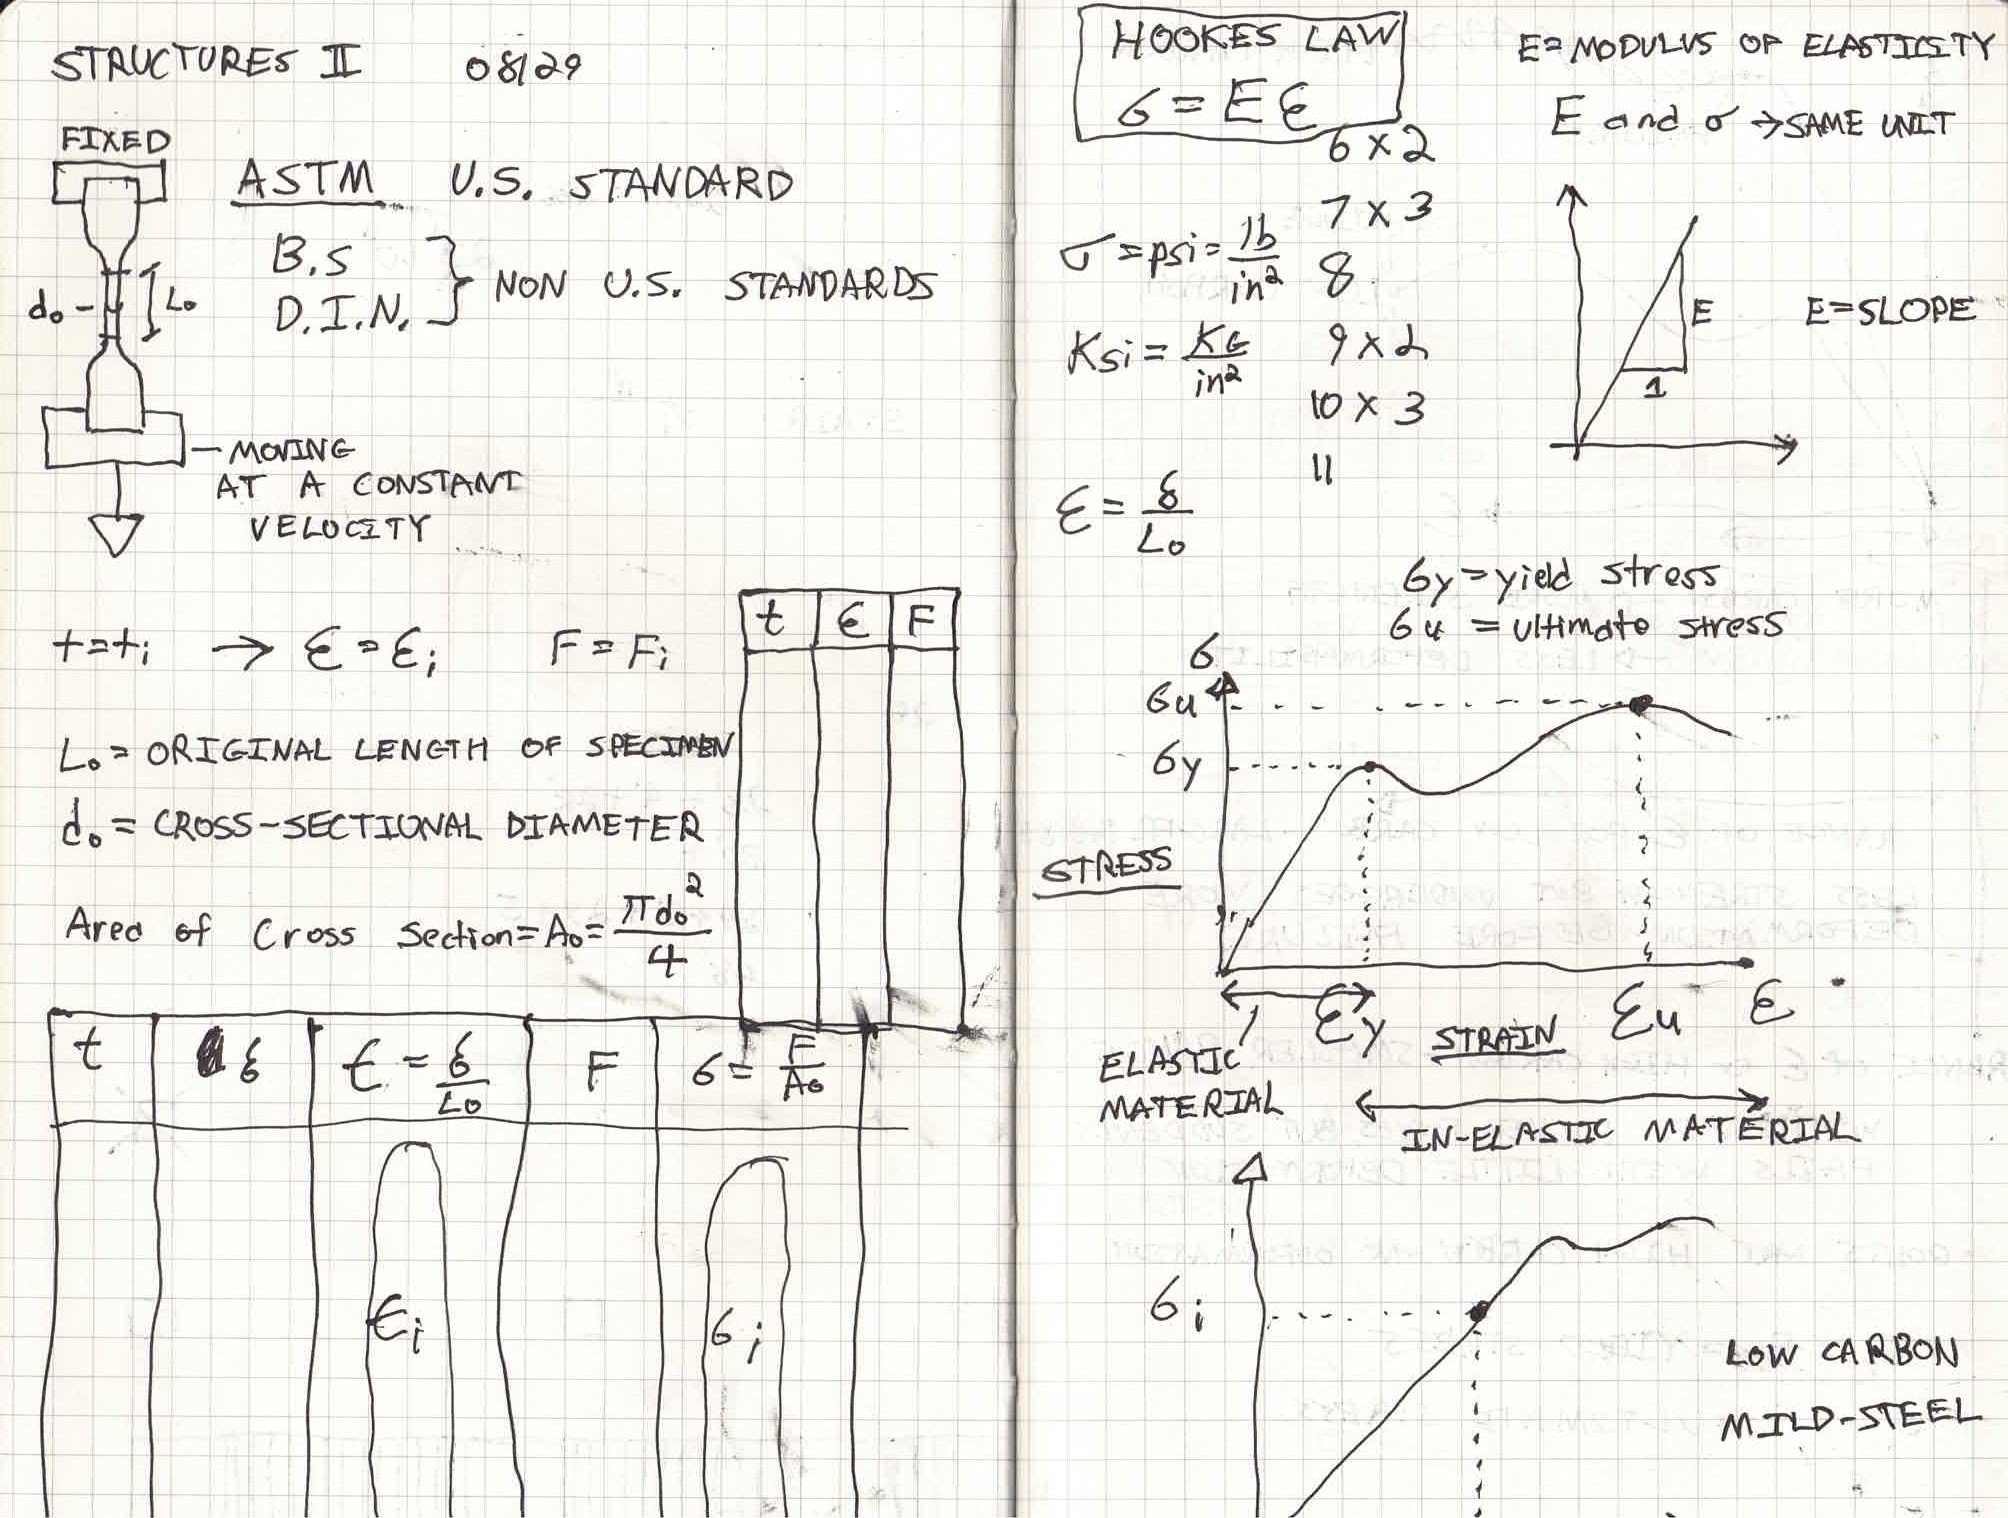 STRUCTURES II 08/29
FIXED
ASTM U.S. STANDARD
B.S
D.I.N. } NON U.S. STANDARDS
do Lo
MOVING
AT A CONSTANT
VELOCITY
t=ti → Ɛ = Ɛi F = Fi
t Ɛ F
Lo = ORIGINAL LENGTH OF SPECIMEN
do = CROSS-SECTIONAL DIAMETER
Area of Cross Section = Ao = πdo²/4
t δ Ɛ = δ/Lo F σ = F/Ao
Ɛi σi
HOOKES LAW
σ = EƐ
E = MODULUS OF ELASTICITY
E and σ → SAME UNIT
6 x 2
7 x 3
8
9 x 2
10 x 3
11
σ = psi = lb/in²
Ksi = KG/in²
Ɛ = δ/Lo
E
1
E = SLOPE
σy = yield stress
σu = ultimate stress
σ
σu
σy
STRESS
Ɛy STRAIN Ɛu Ɛ
ELASTIC
MATERIAL
IN-ELASTIC MATERIAL
σi
LOW CARBON
MILD-STEEL